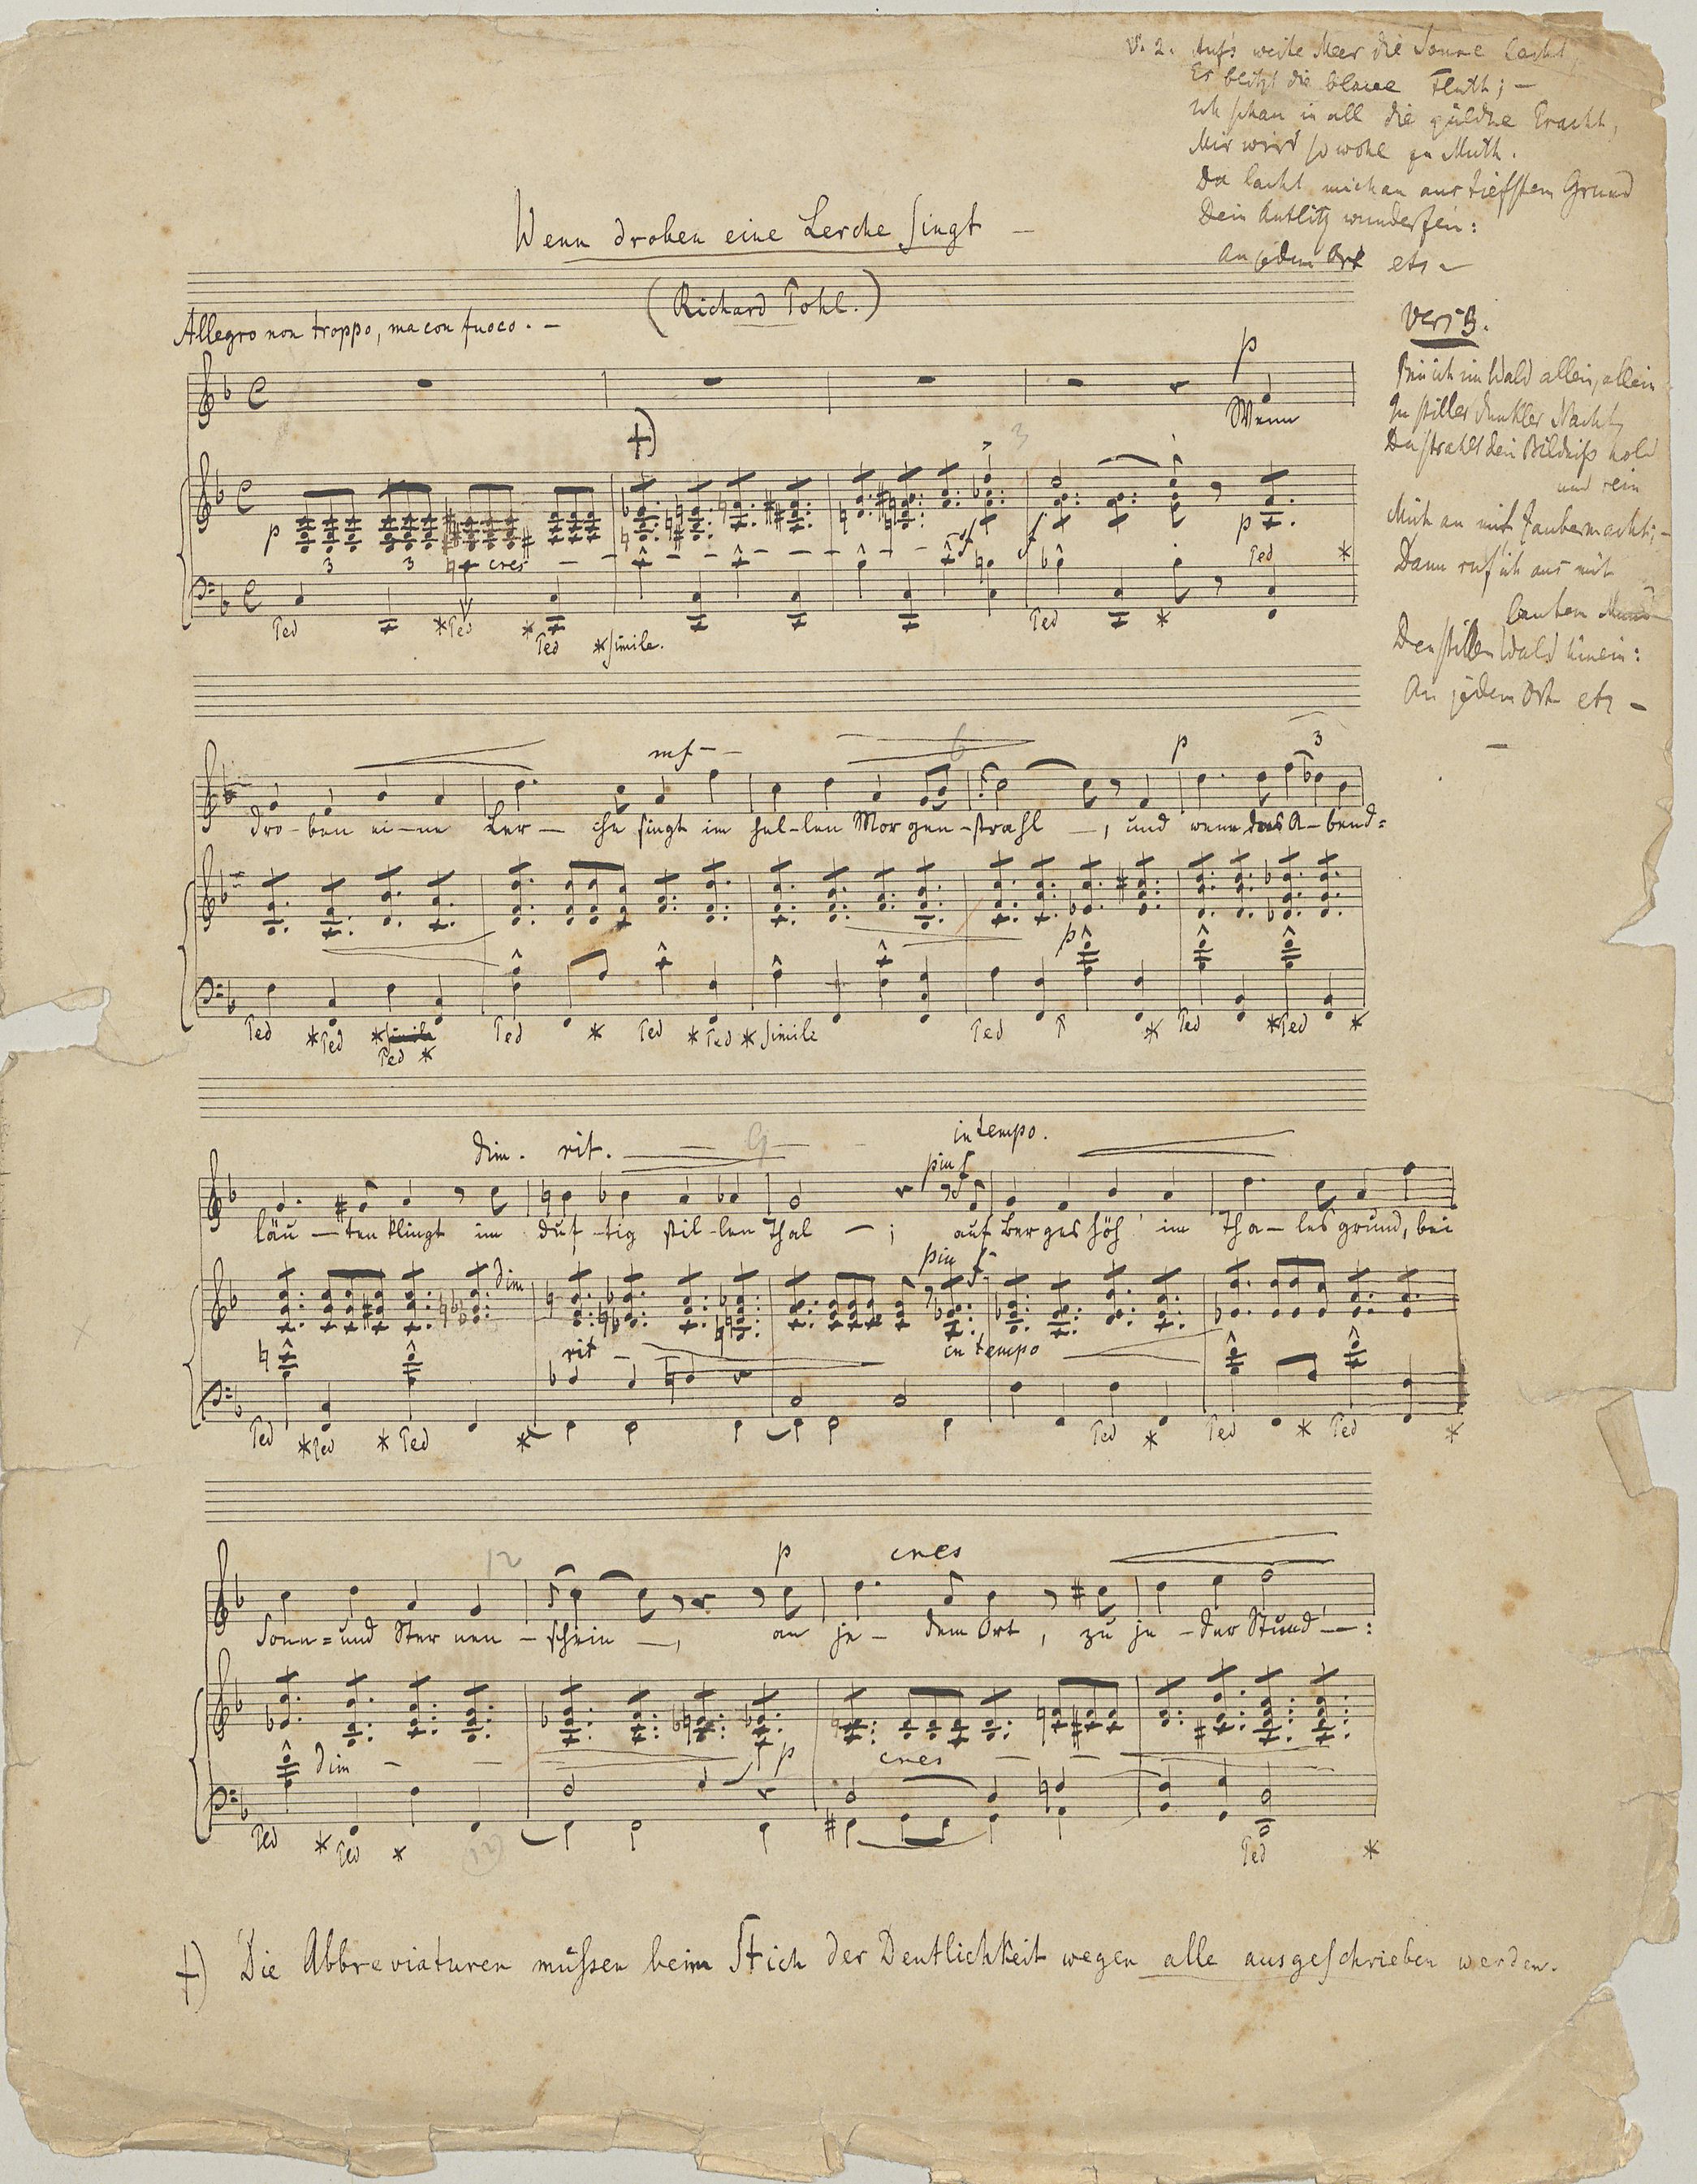 V. 2. Auf's weite Meer die Sonne lacht,
Es blitzt die blaue Fluth; –
Ich schau in all die güldne Pracht,
Mir wird so wohl zu Muth.
Da lacht mich an aus tiefstem Grund
Dein Antlitz wunderfein:
An jedem Ort etc
Wenn droben eine Lerche singt –
(Richard Pohl.)
Allegro non troppo, ma con fuoco. –
Vers 3.
Bin ich im Wald allein, allein
In stiller dunkler Nacht,
Da strahlt dein Bildniß hold
und rein
Mich an mit Zaubermacht; –
Dann ruf ich aus mit
lautem Mund
Den stillen Wald hinein:
An jedem Ort etc –
p
Wenn
+)
3
p 3 3 cres – – – – – – sf f p Ped *
Ped *Ped * Ped *simile. Ped *
mf – – 6 p 3
dro-ben ei-ne Ler – che singt im hel-len Morgen-strahl –, und wenn das A-bend=
p
Ped *Ped *simile Ped * Ped *Ped *simile Ped * Ped *Ped *
Ped *
dim. rit. 9 in tempo.
più f
läu – ten klingt im duf-tig stil-len Thal – ; auf Berges höh' im Tha-lesgrund, bei
dim più f
rit – in tempo
Ped *Ped * Ped * Ped * Ped * Ped *
12 p cres
Sonn=und Ster nen – schein –, an je – dem Ort, zu je – der Stund' –:
dim – – p cres – –
Ped * Ped * (12) Ped *
+) Die Abbreviaturen müssen beim Stich der Deutlichkeit wegen alle ausgeschrieben werden.